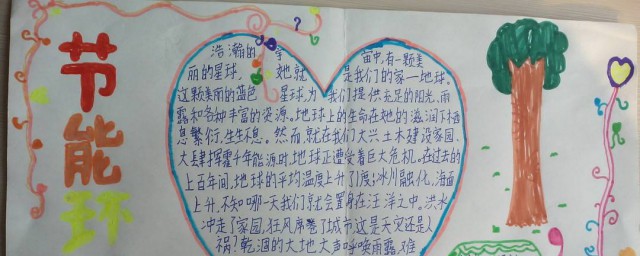 节能环
?
浩瀚的宇宙中,有一颗美
丽的星球,她就是我们的家—地球。
这颗美丽的蓝色星球,为我们提供充足的阳光、雨
露和各种丰富的资源。地球上的生命在她的滋润下栖
息繁衍,生生不息。然而,就在我们大兴土木建设家园、
大肆挥霍千年能源时,地球正遭受着巨大危机。在过去的
上百年间,地球的平均温度上升了1度;冰川融化,海面
上升,不知哪一天我们就会置身在汪洋之中。洪水
冲走了家园,狂风席卷了城市,这是天灾还是人
祸?乾涸的大地大声呼唤雨露,难